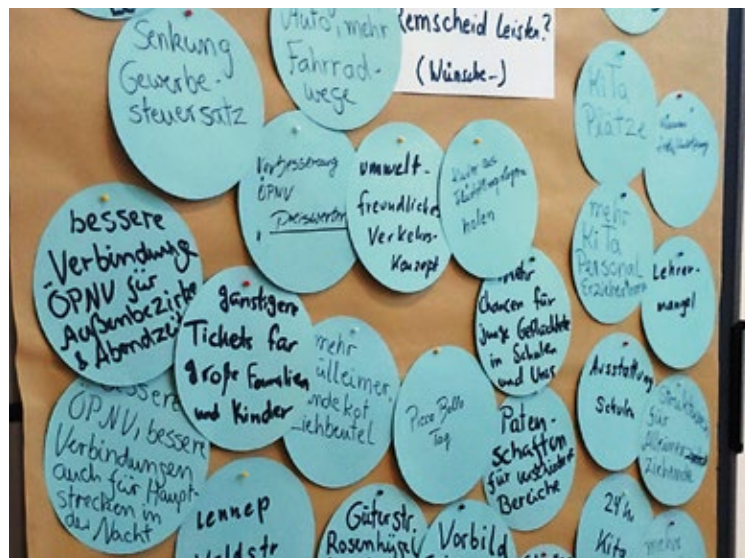 Remscheid leisten?
(Wünsche-)
Senkung
Gewerbe-
steuersatz
Auto, mehr
Fahrrad-
wege
KiTa
Plätze
Verbesserung
ÖPNV
, preiswerter
umwelt-
freundliches
Verkehrs-
Konzept
holen
mehr
KiTa
Personal
ErzieherInnen
Lehrer-
mangel
bessere
Verbindung
ÖPNV für
Außenbezirke
& Abendzeit
günstigere
Tickets für
große Familien
und Kinder
mehr
Mülleimer,
Hundekot
ziehbeutel
mehr
Chancen für
junge Geflüchtete
in Schulen
und Unis
Ausstattung
Schulen
bessere
ÖPNV, bessere
Verbindungen
auch für Haupt-
strecken in
der Nacht
Picco Bello
Tag
Paten-
schaften
für verschiedene
Bereiche
für
Alleinerziehende
Lennep
Waldstr
Güterstr.
Rosenhügel
Vorbild
24h
Kita
mehr